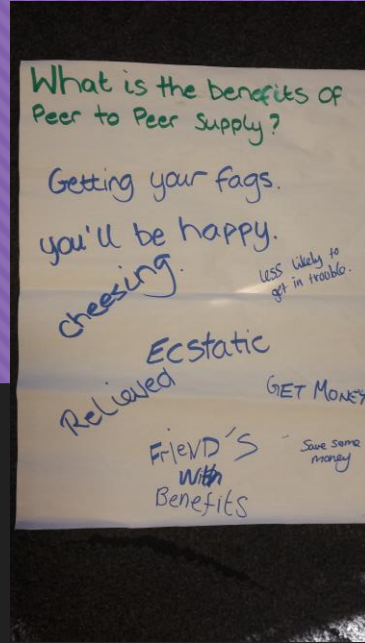 What is the benefits of
Peer to Peer Supply?
Getting your fags.
you'll be happy.
cheesing.
less likely to
get in trouble.
Ecstatic
Relieved
GET MONEY
FrieND'S
With
Benefits
Save some
money